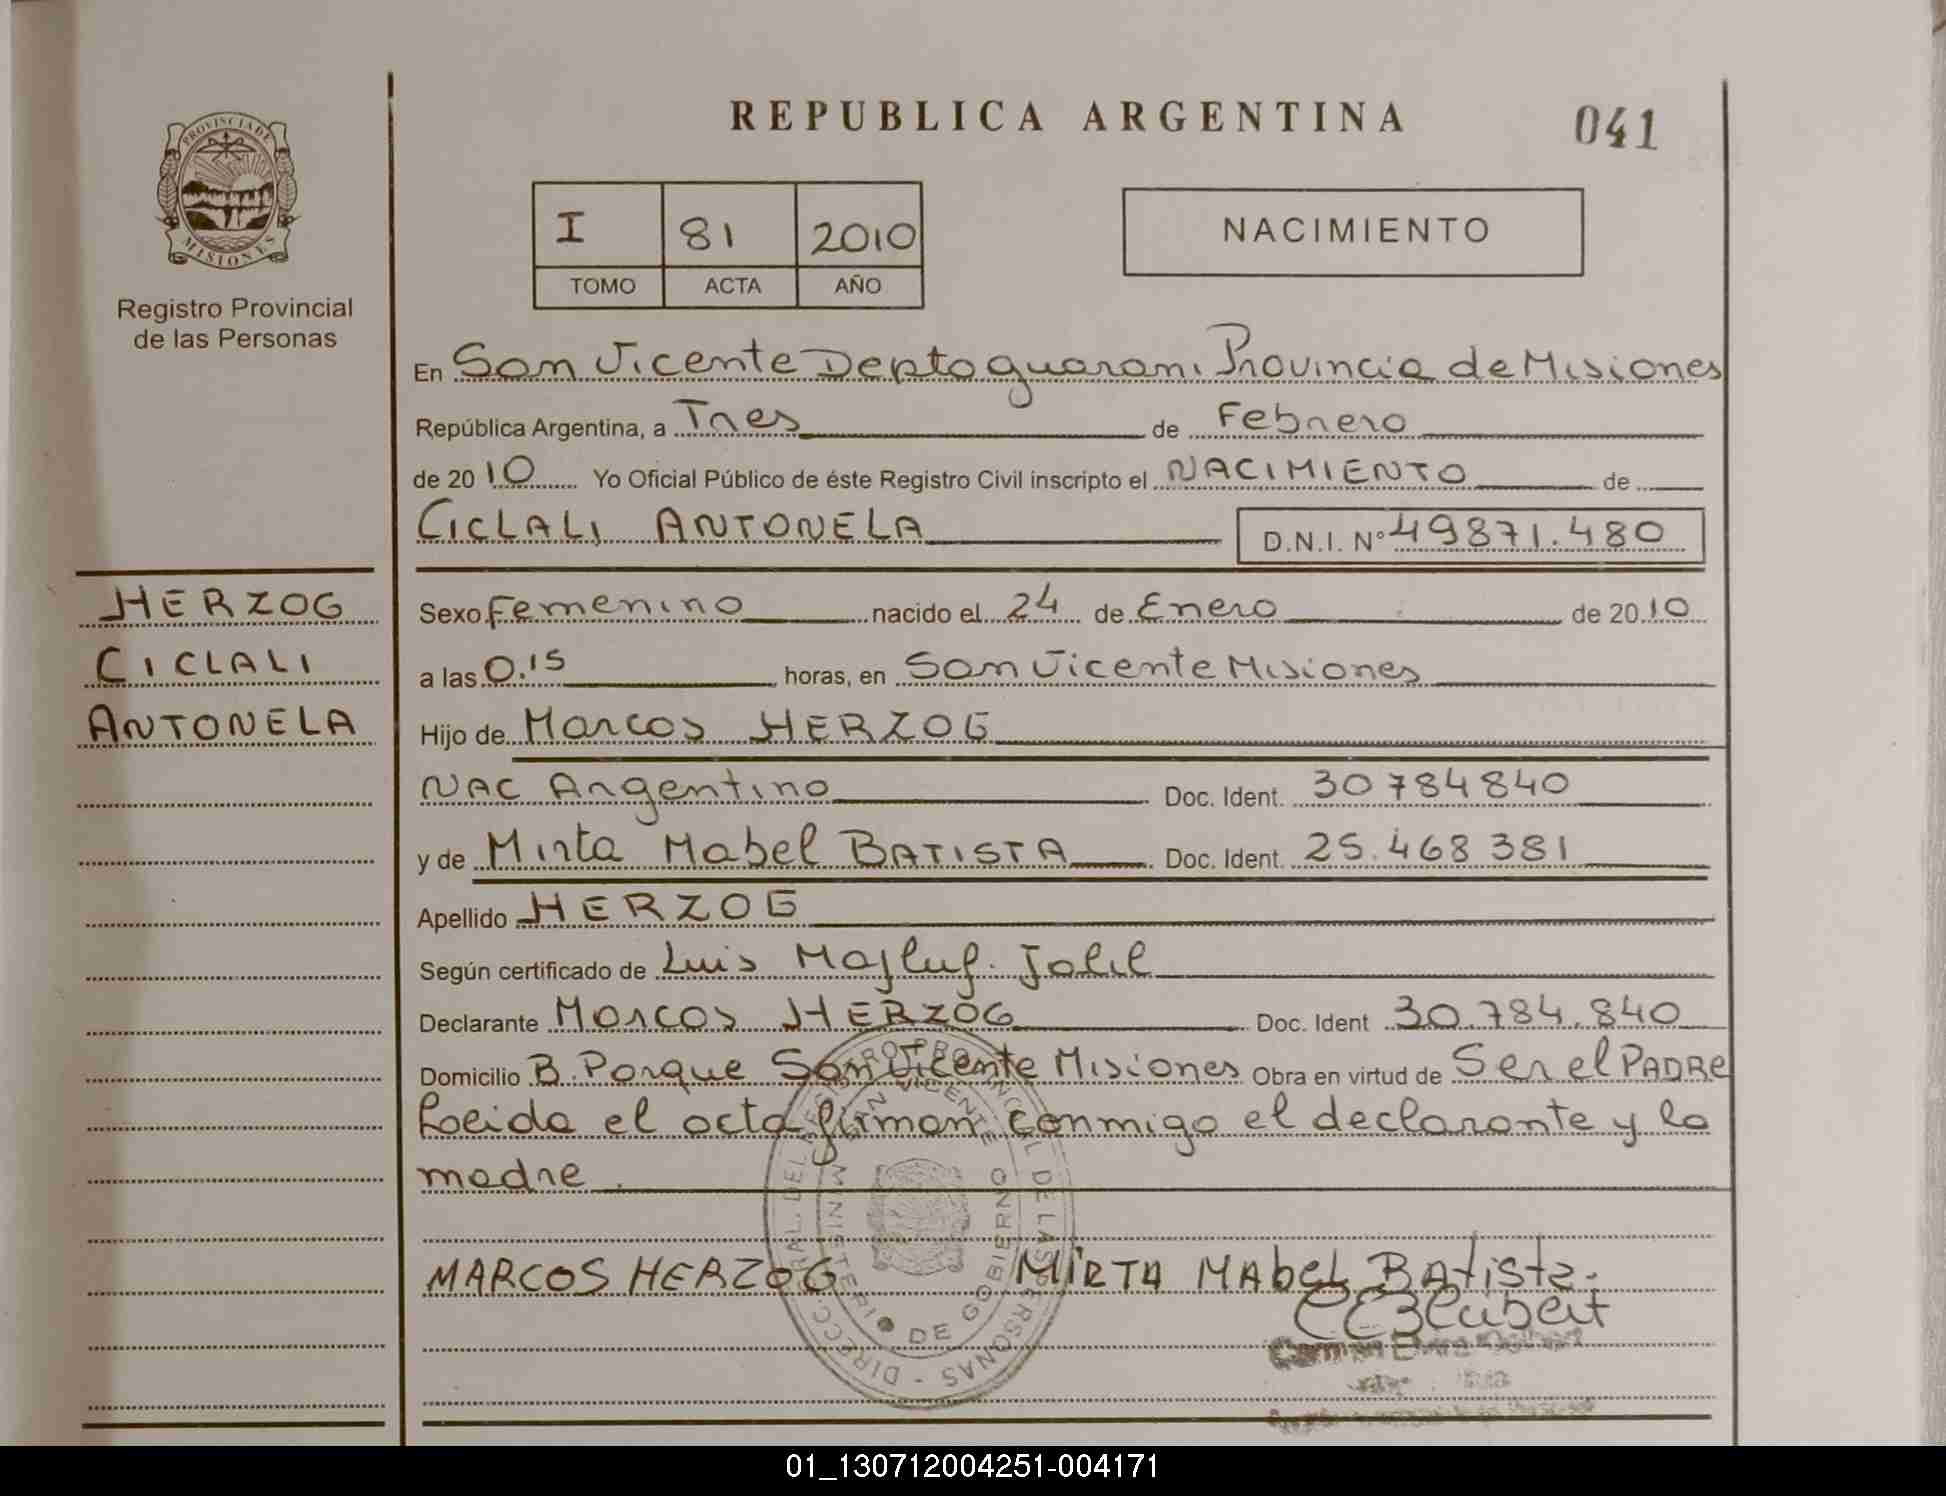 REPUBLICA ARGENTINA
041
PROVINCIA DE MISIONES
Registro Provincial
de las Personas
I 81 2010
TOMO ACTA AÑO
NACIMIENTO
En San Vicente Depto guarani Provincia de Misiones
República Argentina, a Tres de Febrero
de 2010 Yo Oficial Público de éste Registro Civil inscripto el NACIMIENTO de
CICLALI ANTONELA D.N.I. Nº 49871.480
HERZOG
CICLALI
ANTONELA
Sexo Femenino nacido el 24 de Enero de 2010
a las 0.15 horas, en San Vicente Misiones
Hijo de Marcos HERZOG
NAC Argentino Doc. Ident. 30784840
y de Mirta Mabel BATISTA Doc. Ident. 25.468381
Apellido HERZOG
Según certificado de Luis Majluf. Jalil
Declarante Marcos HERZOG Doc. Ident 30.784.840
Domicilio B. Parque San Vicente Misiones Obra en virtud de Ser el PADRE
Leida el acta firman conmigo el declarante y la
madre.
DIRECC. GRAL. DEL REGISTRO PROVINCIAL DE LAS PERSONAS -
SAN VICENTE
MINISTERIO DE GOBIERNO
MARCOS HERZOG MIRTA MAbEL BAtista.
01_130712004251-004171